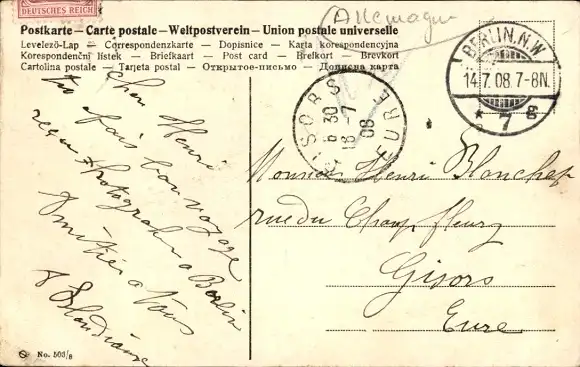 DEUTSCHES REICH
Allemagne
Postkarte — Carte postale — Weltpostverein — Union postale universelle
Levelező-Lap — Correspondenzkarte — Dopisnice — Karta korespondencyjna
Korespondenční lístek — Briefkaart — Post card — Brefkort — Brevkort
Cartolina postale — Tarjeta postal — Открытое-письмо — Дописна карта
BERLIN.N.W.
14.7.08.7-8N.
* 7 g
GISORS
6 30
16 -7
08
EURE
Cher Henri
fais bon voyage
reçu Photograph a Berlin
Amitiés a Vous
Monsieur Henri Blanchet
rue du Champ fleury
Gisors
Eure
No. 503/8